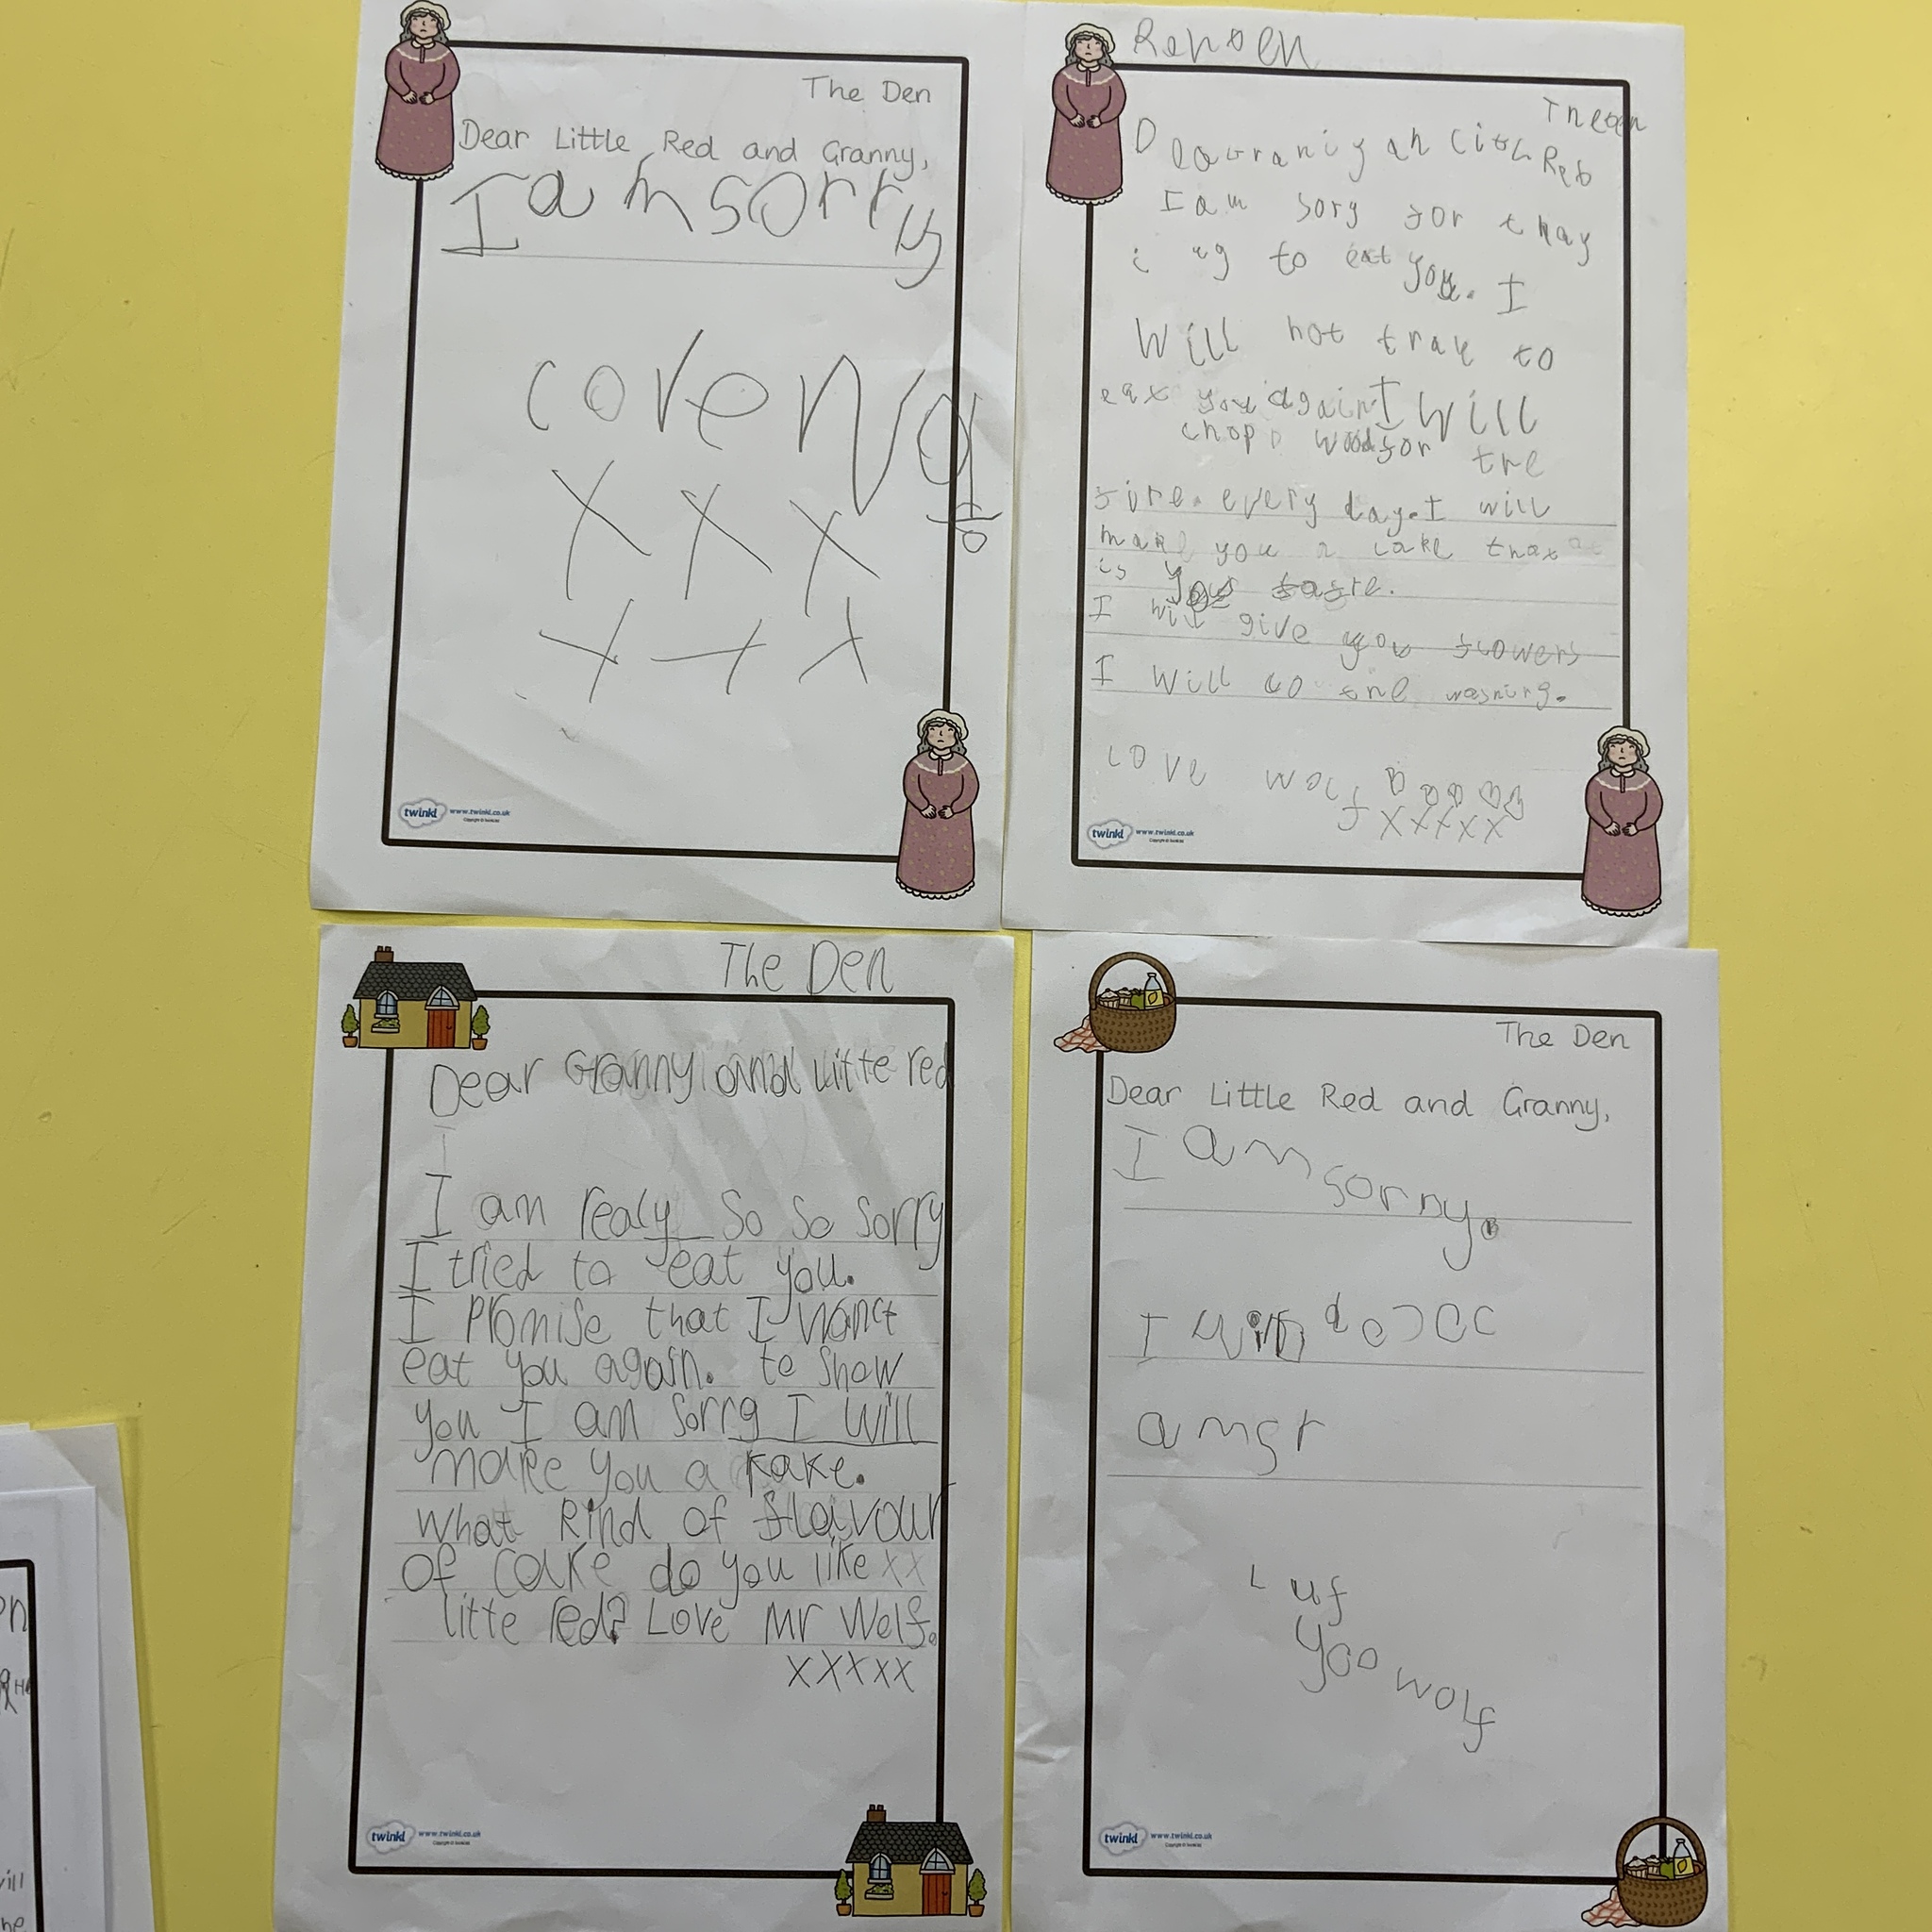 The Den
Dear Little Red and Granny,
I am sorry
xxx
xxx
twinkl www.twinkl.co.uk
Reuben
I am sory for thay
i ng to eat you. I
Will not tray to
eat you again I Will
chop wood for the
fire. every day. I will
make you a cake that
is your
I will give you flowers
I Will do the washing.
Love wolf
xxxxx
twinkl www.twinkl.co.uk
The Den
Dear Granny and Litte red
I am realy so so sorry
I tried to eat you.
I promise that I wont
eat you again. to show
you I am sorry I will
make you a kake.
what kind of flavour
of cake do you like xx
litte red? Love Mr Wolf.
xxxxx
twinkl www.twinkl.co.uk
The Den
Dear Little Red and Granny,
I am sorry.
I
Luf
yoo wolf
twinkl www.twinkl.co.uk